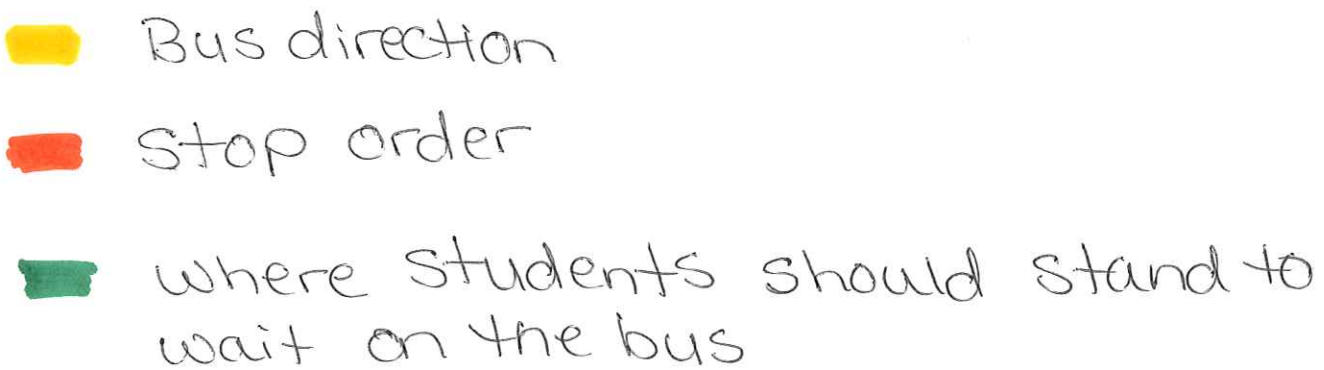 Bus direction
Stop order
where students should stand to
wait on the bus